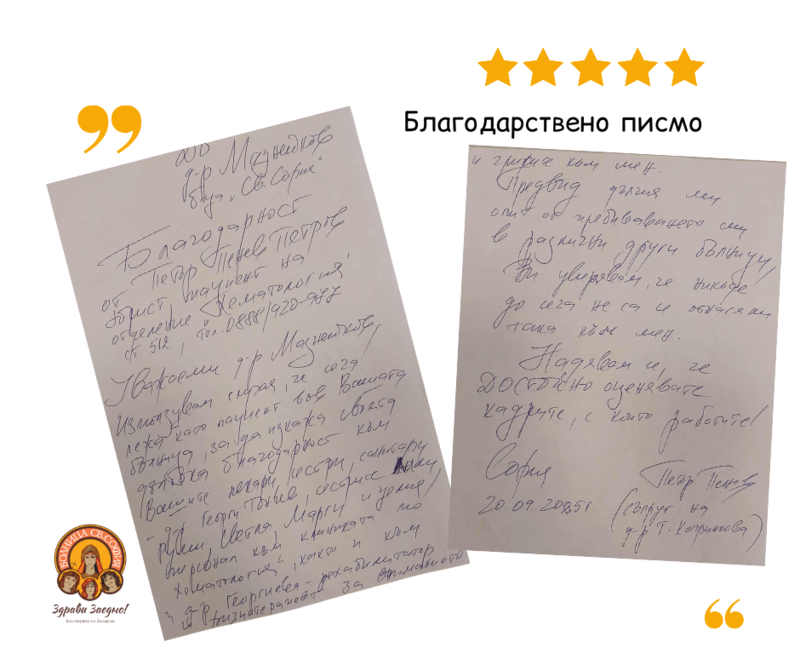 Благодарствено писмо
До
д-р Маджедков
б-ца „Св. София"
Благодарност
от Петър Пенев Петров
юрист, пациент на
отделение „Хематология"
ст 512, тел. 0888/920-977
Уважаеми д-р Маджедков,
Използвам случая, че сега
лежа като пациент във Вашата
болница, за да изкажа своята
дълбока благодарност към
Вашите лекари, сестри, санитари
- д-р Георги Тонев, сестрите
Светла, Марги и целия
персонал към клиниката по
Хематология, както и към
д-р Георгиева - рехабилитатор
и физиотерапевт за вниманието
и грижите към мен.
Предвид дългия ми
опит от пребиваването ми
в различни други болници,
Ви уверявам, че никъде
до сега не са се отнасяли
така към мен.
Надявам се, че
ДОСТОЙНО оценявате
кадрите, с които работите!
София
20.09.2025г.
Петър Пенев
(съпруг на
д-р Т. Копринкова)
БОЛНИЦА СВ. СОФИЯ
Здрави Заедно!